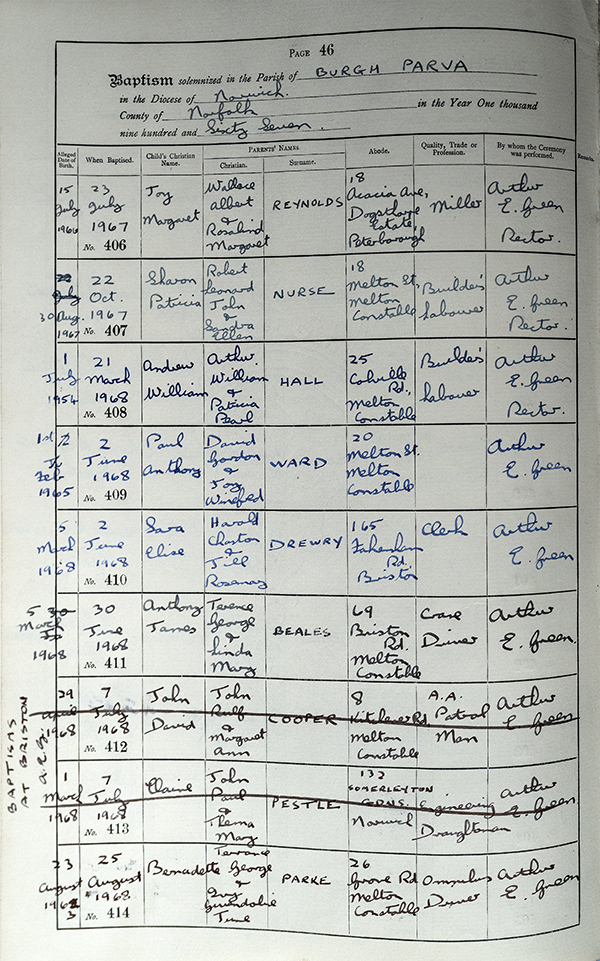 PAGE 46
Baptism solemnized in the Parish of BURGH PARVA
in the Diocese of Norwich. in the Year One thousand
County of Norfolk
nine hundred and Sixty Seven.
Alleged Date of Birth. When Baptised. Child's Christian Name. PARENTS' NAMES Christian. Surname. Abode. Quality, Trade or Profession. By whom the Ceremony was performed. Remarks.
15 July 1966
23 July 1967
No. 406
Joy Margaret
Wallace Albert & Rosalind Margaret
REYNOLDS
18 Acacia Ave, Dogsthorpe Estate, Peterborough
Miller
Arthur E. Green Rector.
22 July 30 Aug. 1967
22 Oct. 1967
No. 407
Sharon Patricia
Robert Leonard John & Sandra Ellen
NURSE
18 Melton St, Melton Constable
Builder's Labourer
Arthur E. Green Rector.
1 July 1954
21 March 1968
No. 408
Andrew William
Arthur William & Patricia Pearl
HALL
25 Colville Rd, Melton Constable
Builder's Labourer
Arthur E. Green Rector.
1st Feb 1965
2 June 1968
No. 409
Paul Anthony
David Gordon & Joy Winifred
WARD
20 Melton St. Melton Constable
Arthur E. Green
5 March 1968
2 June 1968
No. 410
Sara Elise
Harold Charton & Jill Rosemary
DREWRY
165 Fakenham Rd. Briston
Clerk
Arthur E. Green
5 30 March 1968
30 June 1968
No. 411
Anthony James
Terence George & Linda Mary
BEALES
69 Briston Rd. Melton Constable
Crane Driver
Arthur E. Green.
29 April 1968
7 July 1968
No. 412
John David
John Rolf & Margaret Ann
COOPER
8 Kitchener Rd, Melton Constable
A.A. Patrol Man
Arthur E Green
1 March 1968
7 July 1968
No. 413
Elaine
John Paul & Thelma Mary
PESTLE
132 SOMERLEYTON GDNS. Norwich
Engineering Draughtsman
Arthur E. Green
BAPTISMS AT BRISTON
A.E.G.
23 August
25 August 1968
No. 414
Bernadette
Terrance George & Gwendoline June
PARKE
26 Grove Rd Melton Constable
Omnibus Driver
Arthur E. Green